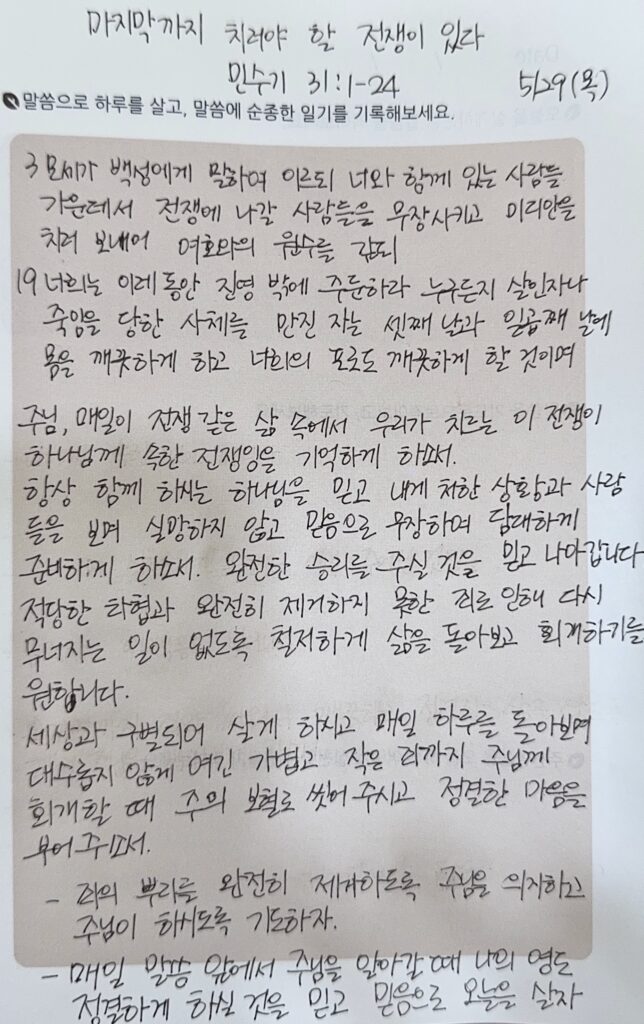 마지막까지 치러야 할 전쟁이 있다
민수기 31:1-24 5/29(목)
말씀으로 하루를 살고, 말씀에 순종한 일기를 기록해보세요.
3 모세가 백성에게 말하여 이르되 너와 함께 있는 사람들
가운데서 전쟁에 나갈 사람들을 무장시키고 미디안을
치러 보내어 여호와의 원수를 갚되
19 너희는 이레 동안 진영 밖에 주둔하라 누구든지 살인자나
죽임을 당한 사체를 만진 자는 셋째 날과 일곱째 날에
몸을 깨끗하게 하고 너희의 포로도 깨끗하게 할 것이며
주님, 매일이 전쟁 같은 삶 속에서 우리가 치르는 이 전쟁이
하나님께 속한 전쟁임을 기억하게 하소서.
항상 함께 하시는 하나님을 믿고 내게 처한 상황과 사람
들을 보며 실망하지 않고 믿음으로 무장하며 담대하게
준비하게 하소서. 완전한 승리를 주실 것을 믿고 나아갑니다
적당한 타협과 완전히 제거하지 못한 죄로 인해 다시
무너지는 일이 없도록 철저하게 삶을 돌아보고 회개하기를
원합니다.
세상과 구별되어 살게 하시고 매일 하루를 돌아보며
대수롭지 않게 여긴 가볍고 작은 죄까지 주님께
회개할 때 주의 보혈로 씻어 주시고 정결한 마음을
부어 주소서.
- 죄의 뿌리를 완전히 제거하도록 주님을 의지하고
주님이 하시도록 기도하자.
- 매일 말씀 앞에서 주님을 알아갈 때 나의 영도
정결하게 하실 것을 믿고 믿음으로 오늘을 살자